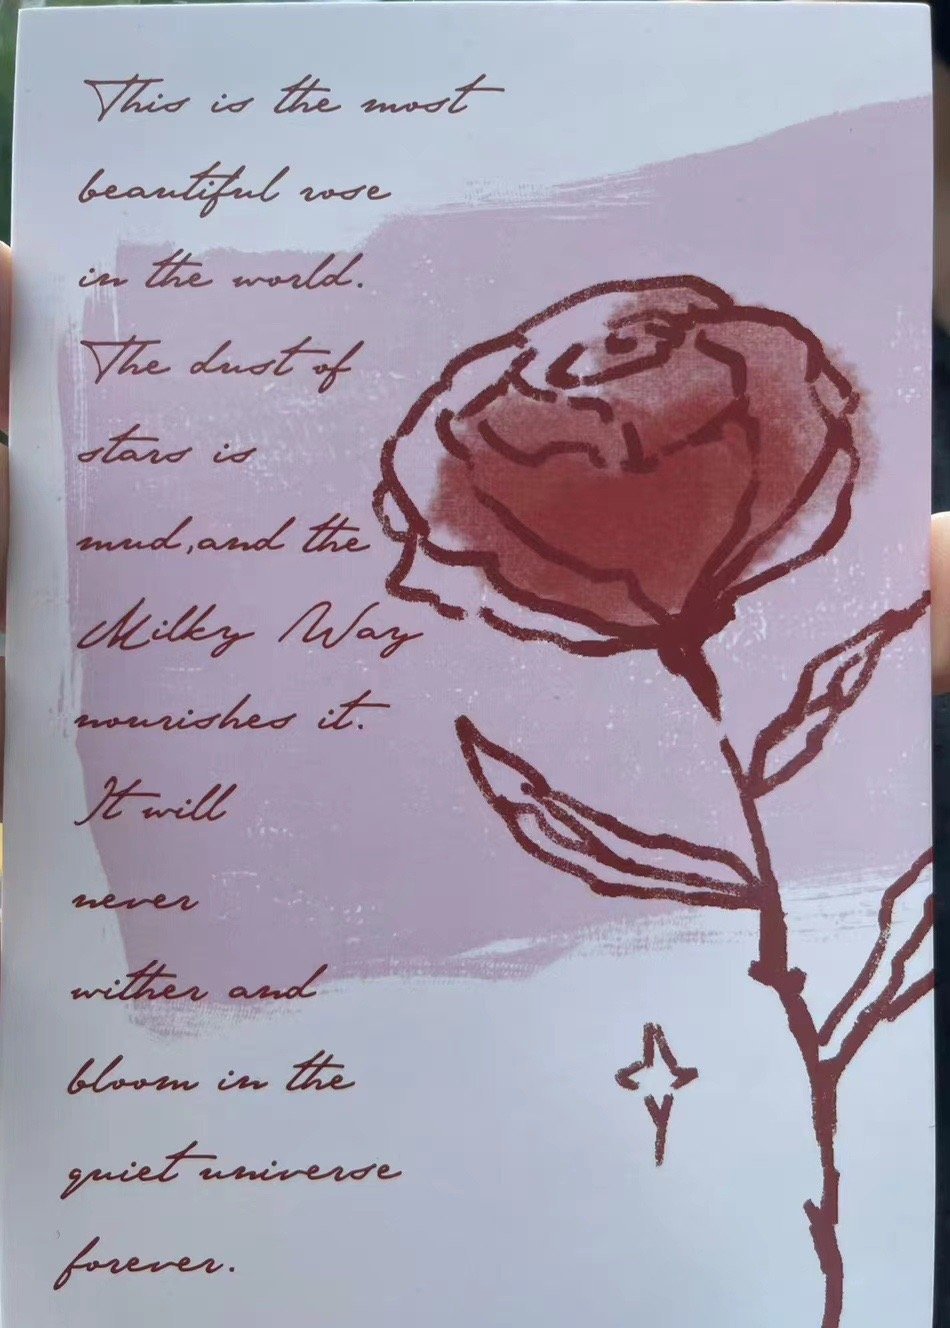 This is the most
beautiful rose
in the world.
The dust of
stars is
mud,and the
Milky Way
nourishes it.
It will
never
wither and
bloom in the
quiet universe
forever.